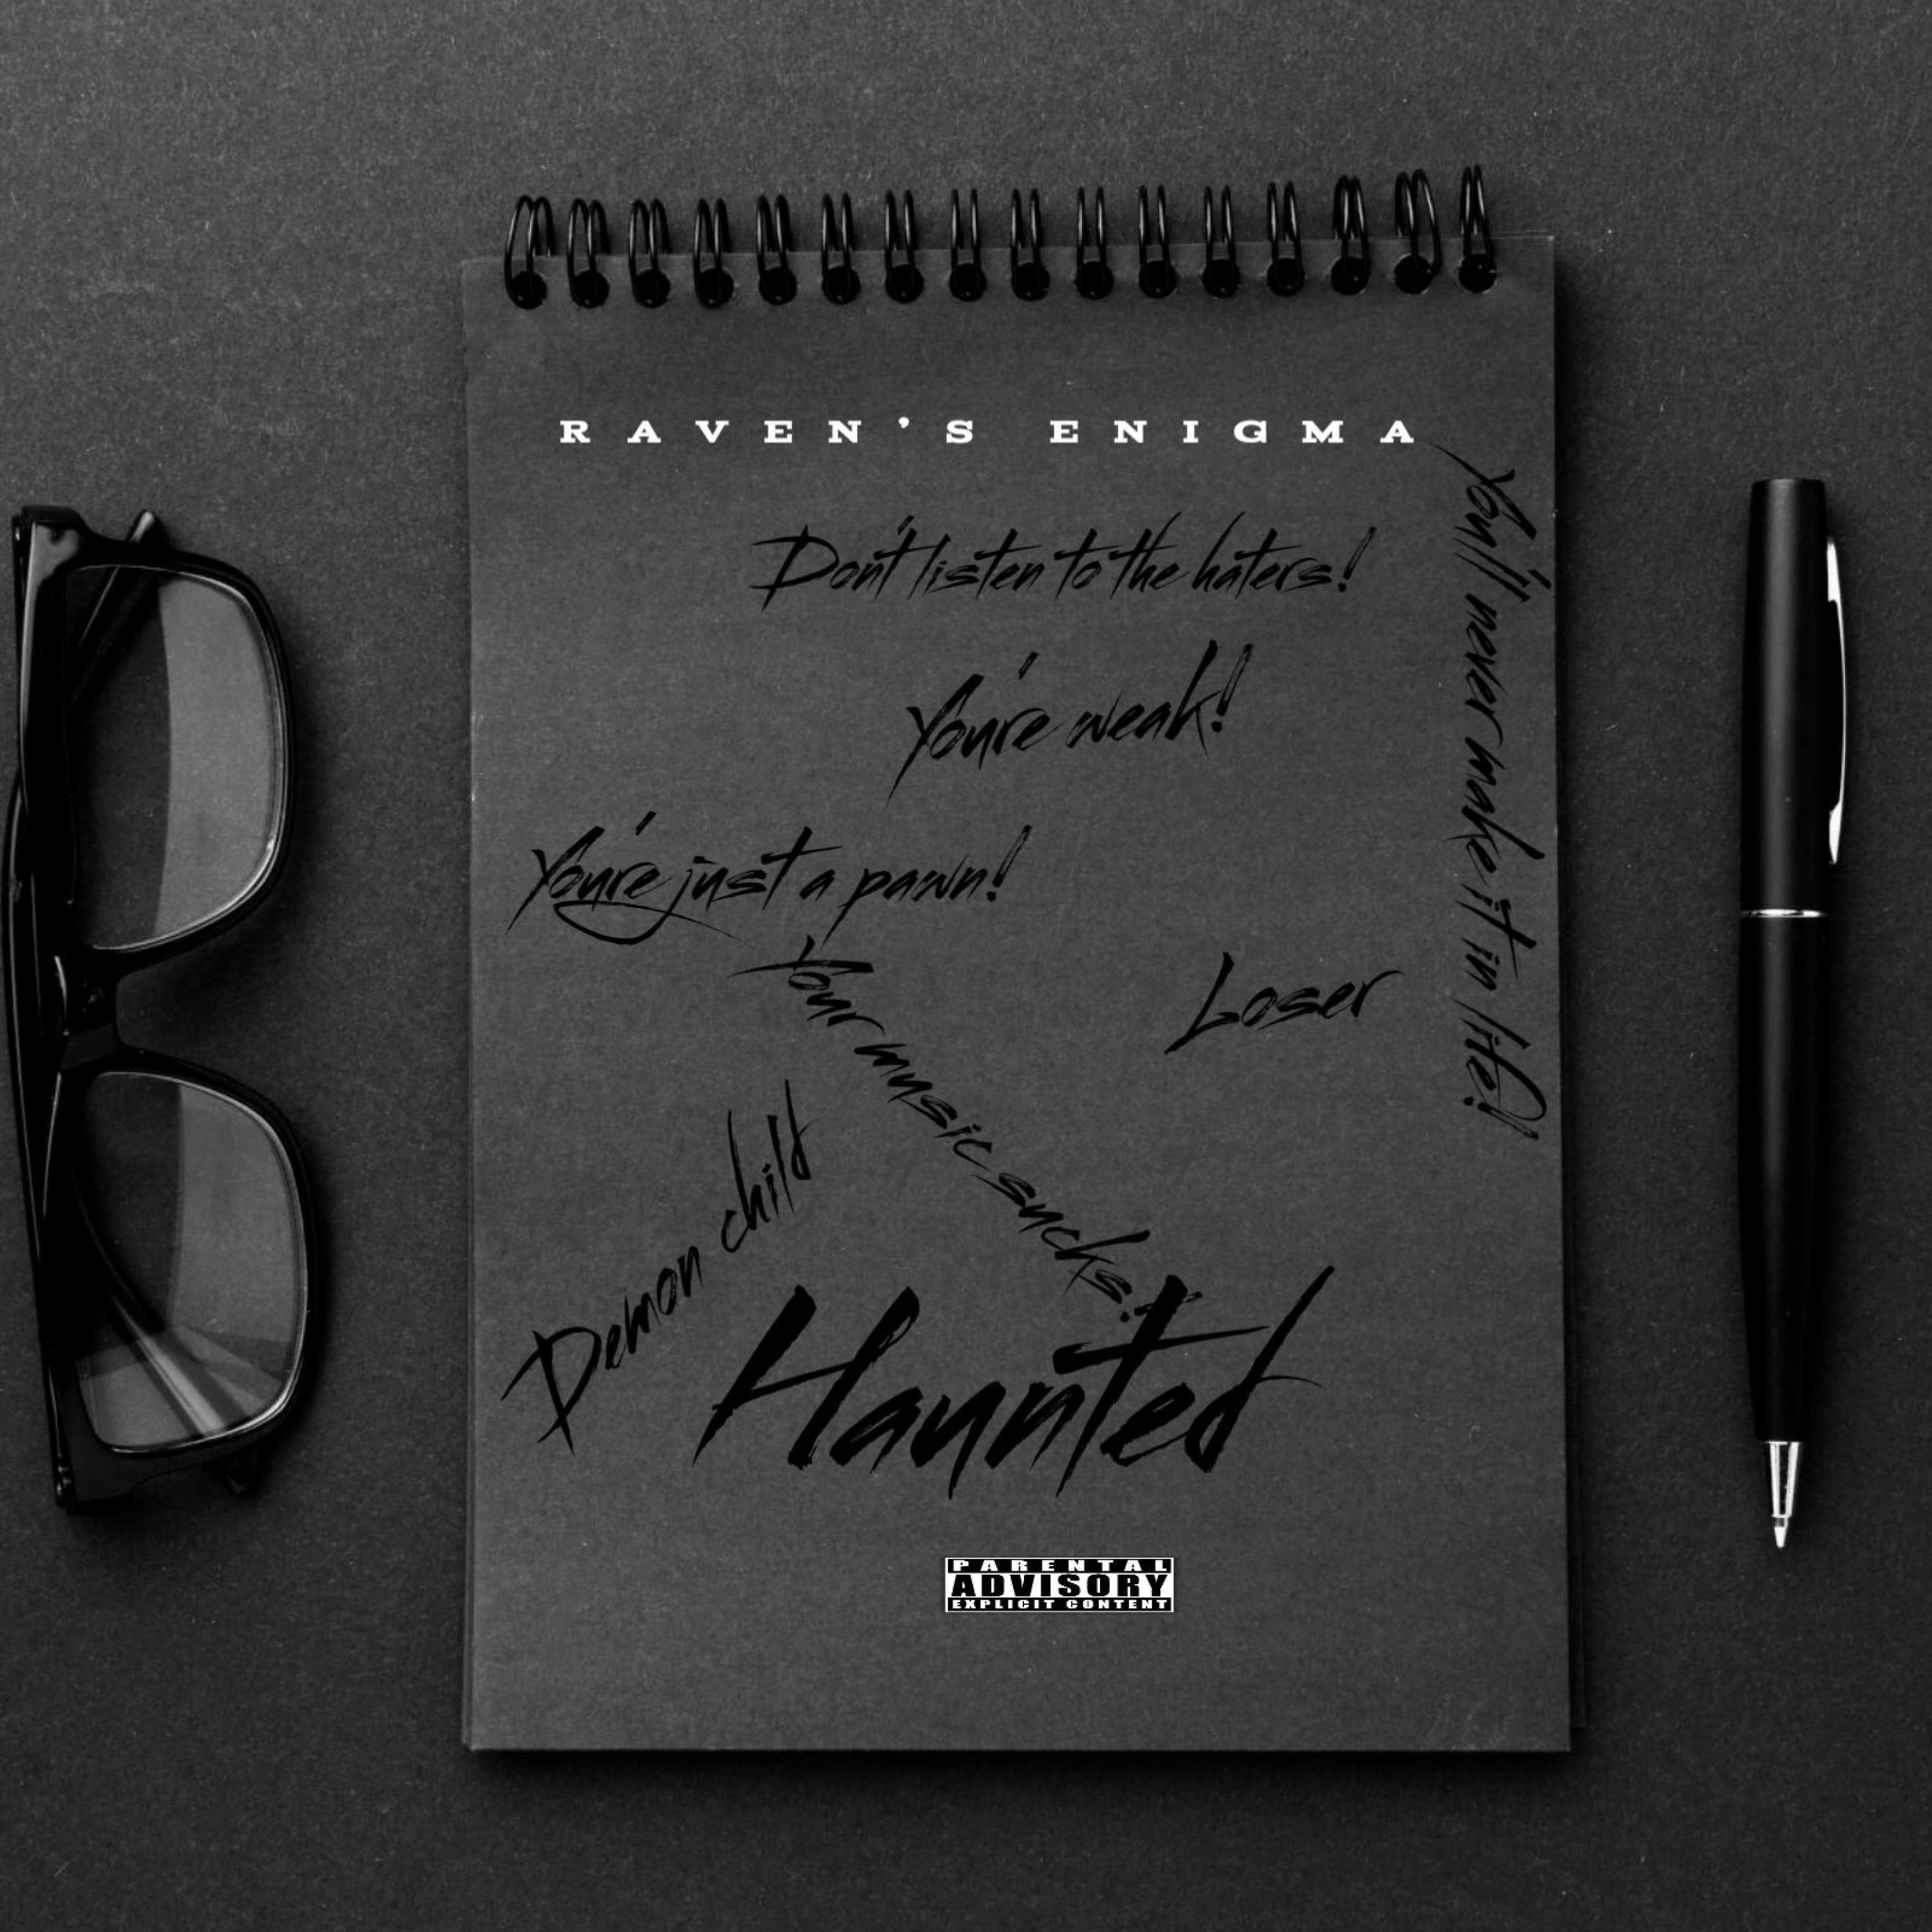 RAVEN'S ENIGMA
Don't listen to the haters!
You'll never make it in life!
You're weak!
You're just a pawn!
Your music sucks!
Loser
Demon child
Haunted
PARENTAL
ADVISORY
EXPLICIT CONTENT